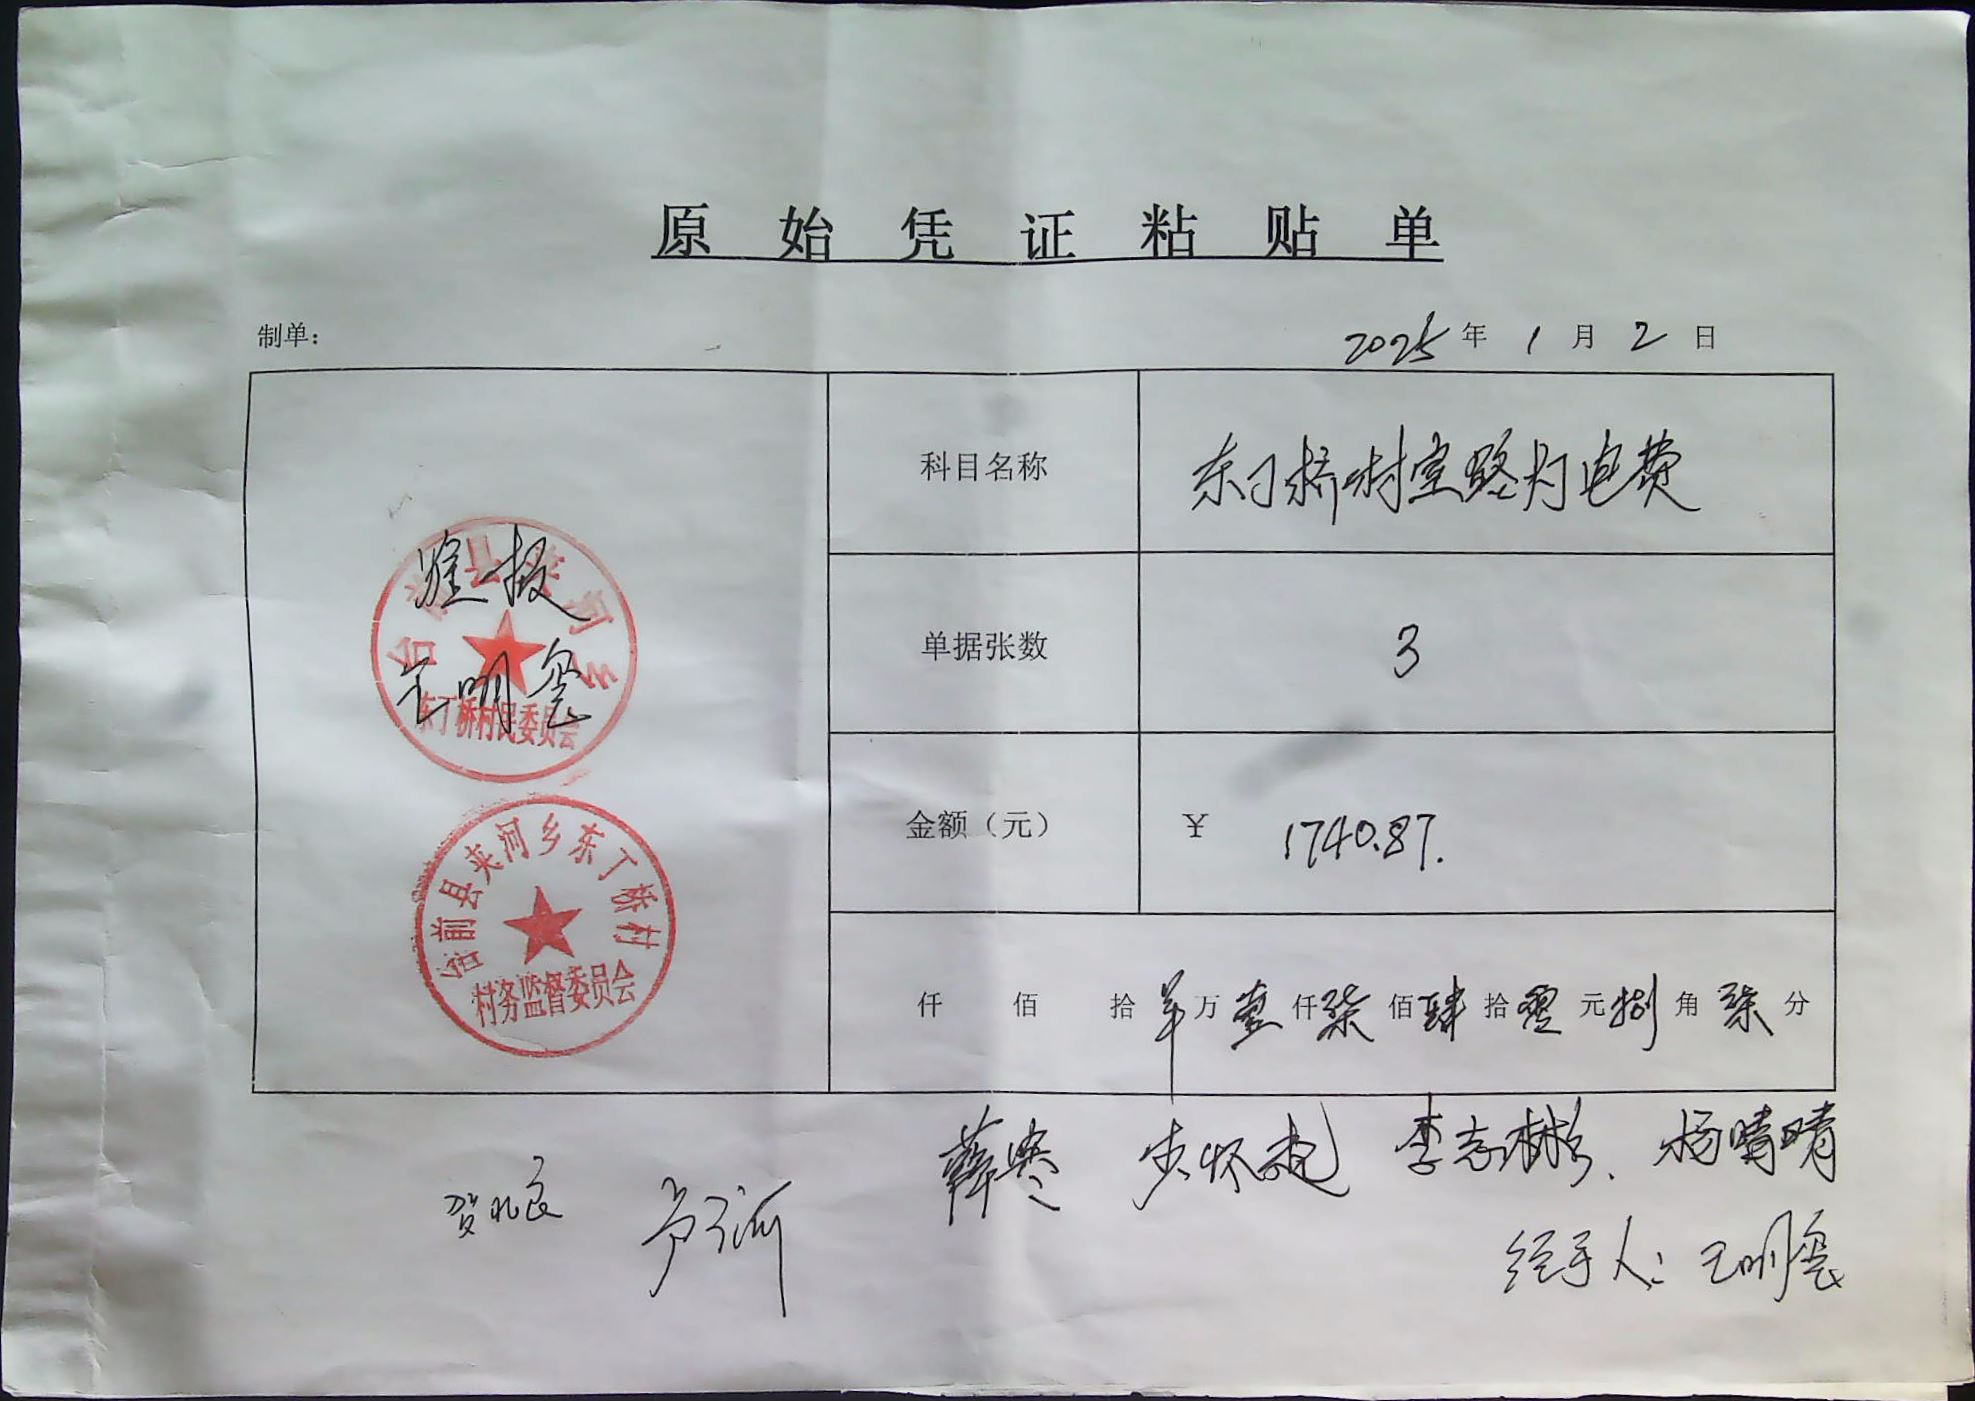 原始凭证粘贴单
制单：
2025年1月2日
科目名称 东丁桥村室路灯电费
单据张数 3
金额（元） ￥ 1740.87.
仟 佰 拾 万 壹 仟 柒 佰 肆 拾 零 元 捌 角 柒 分
准报
王明玺
台前县夹河乡
东丁桥村民委员会
台前县夹河乡东丁桥村
村务监督委员会
李志彬、 杨晴晴
经手人：王明玺